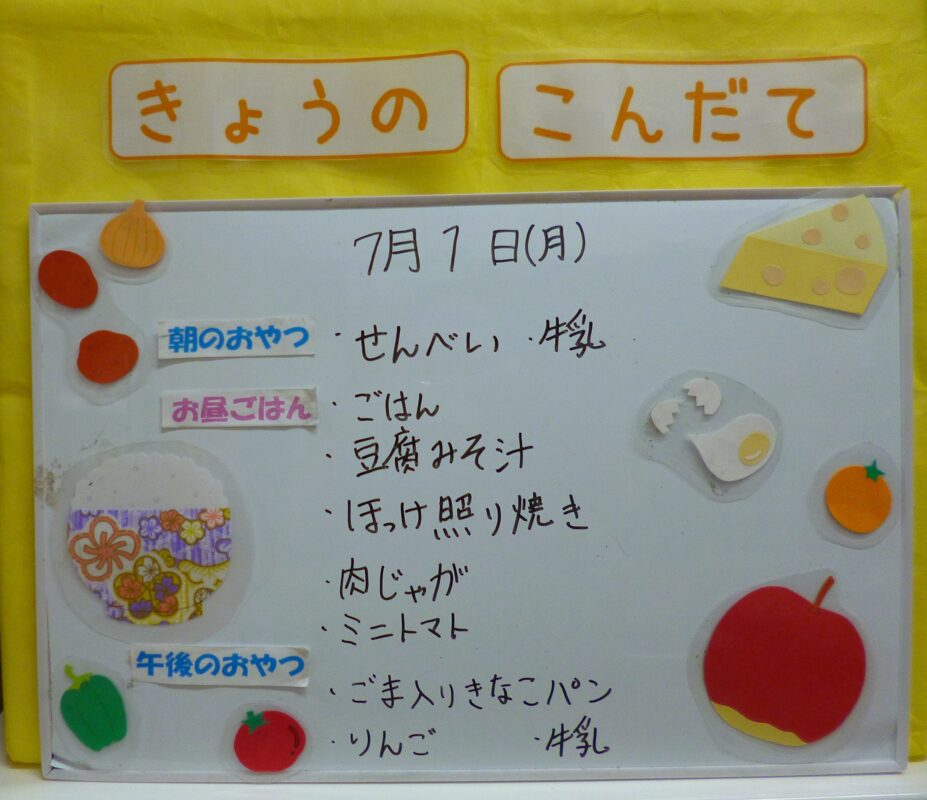 きょうの こんだて
7月1日(月)
朝のおやつ ・せんべい ・牛乳
お昼ごはん ・ごはん
・豆腐みそ汁
・ほっけ照り焼き
・肉じゃが
・ミニトマト
午後のおやつ
・ごま入りきなこパン
・りんご ・牛乳